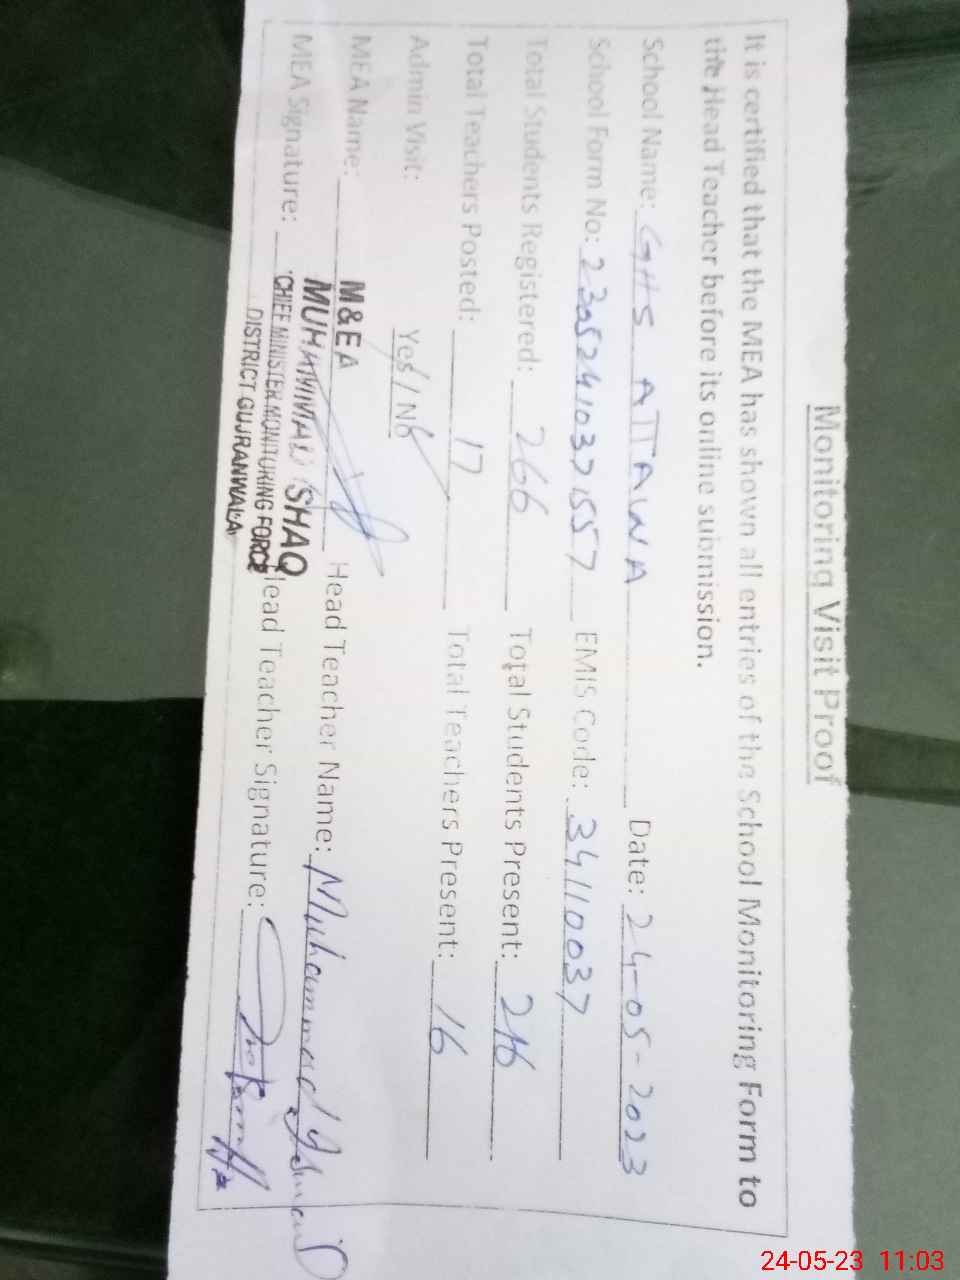 Monitoring Visit Proof
It is certified that the MEA has shown all entries of the School Monitoring Form to
the Head Teacher before its online submission.
School Name: GHS ATTAWA Date: 24-05-2023
School Form No: 2305241037557 EMIS Code: 34110037
Total Students Registered: 266 Total Students Present: 216
Total Teachers Posted: 17 Total Teachers Present: 16
Admin Visit: Yes / No
MEA Name: M&EA Head Teacher Name: Muhammad
MUHAMMAD ISHAQ
MEA Signature: CHIEF MINISTER MONITORING FORCE Head Teacher Signature:
DISTRICT GUJRANWALA
24-05-23 11:03